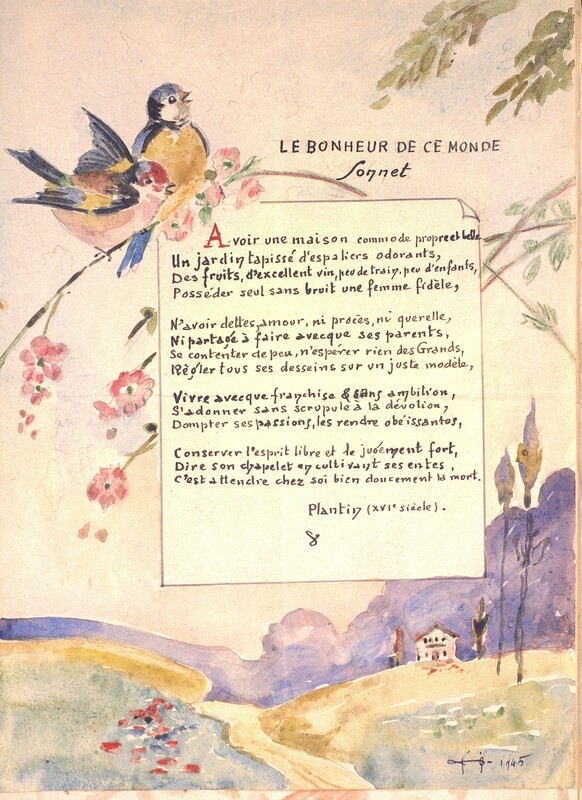 LE BONHEUR DE CE MONDE
Sonnet
Avoir une maison commode propre et belle
Un jardin tapissé d'espaliers odorants,
Des fruits, d'excellent vin, peu de train, peu d'enfants,
Posséder seul sans bruit une femme fidèle,
N'avoir dettes, amour, ni procès, ni querelle,
Ni partage à faire avecque ses parents,
Se contenter de peu, n'espérer rien des Grands,
Régler tous ses desseins sur un juste modèle,
Vivre avecque franchise & sans ambition,
S'adonner sans scrupule à la dévotion,
Dompter ses passions, les rendre obéissantes,
Conserver l'esprit libre et le jugement fort,
Dire son chapelet en cultivant ses entes,
C'est attendre chez soi bien doucement la mort.
Plantin (XVIe siècle).
1945